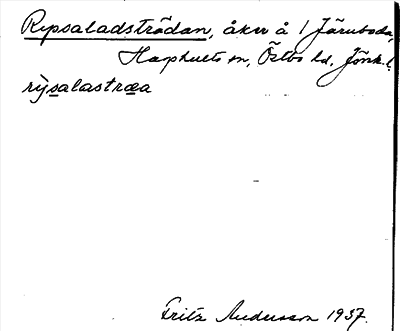 Rypsaladsträdan, åker å 1 Järnboda,
Hagshults sn, Östbo hd, Jönk. l.
rỳsalastræa
Fritz Andersson 1937.